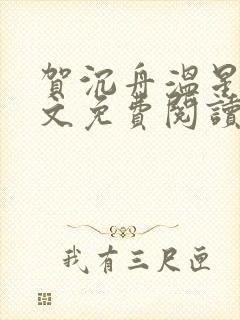 賀沉舟溫星
文免費閱讀
我有三尺匣